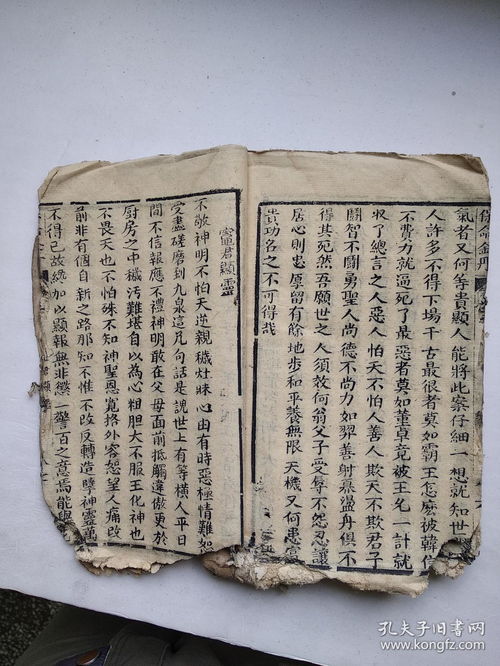 保命金丹
氣者又何等貴顯人能將此案仔細一想就知世
人許多不得下場千古最狠者莫如霸王怎麽被韓信
不費力就逼死了最惡者莫如董卓竟被王允一計就
收了總言之人惡人怕天不怕人善人欺天不欺君子
鬬智不鬬勇聖人尚德不尚力如羿善射奡盪舟俱不
得其死然吾願世之人須效何翁父子受辱不怨忍讓
居心則忠厚留有餘地步和平養無限天機又何患富
貴功名之不可得哉
竈君顯靈
不敬神明不怕天逆親穢灶昧心由有時惡極情難
受盡磋磨到九泉這几句話是說世上有等橫人平日
間不信報應不禮神明敢在父母面前抵觸違傲更於
厨房之中穢污難堪自以為心粗胆大不服王化神也
不畏天也不怕殊不知神聖恩寬格外容恕望人痛改
前非有個自新之路那知不惟不改反轉造孽神靈萬
不得已故纔加以顯報無非懲一警百之意焉能與
孔夫子旧书网
www.kongfz.com